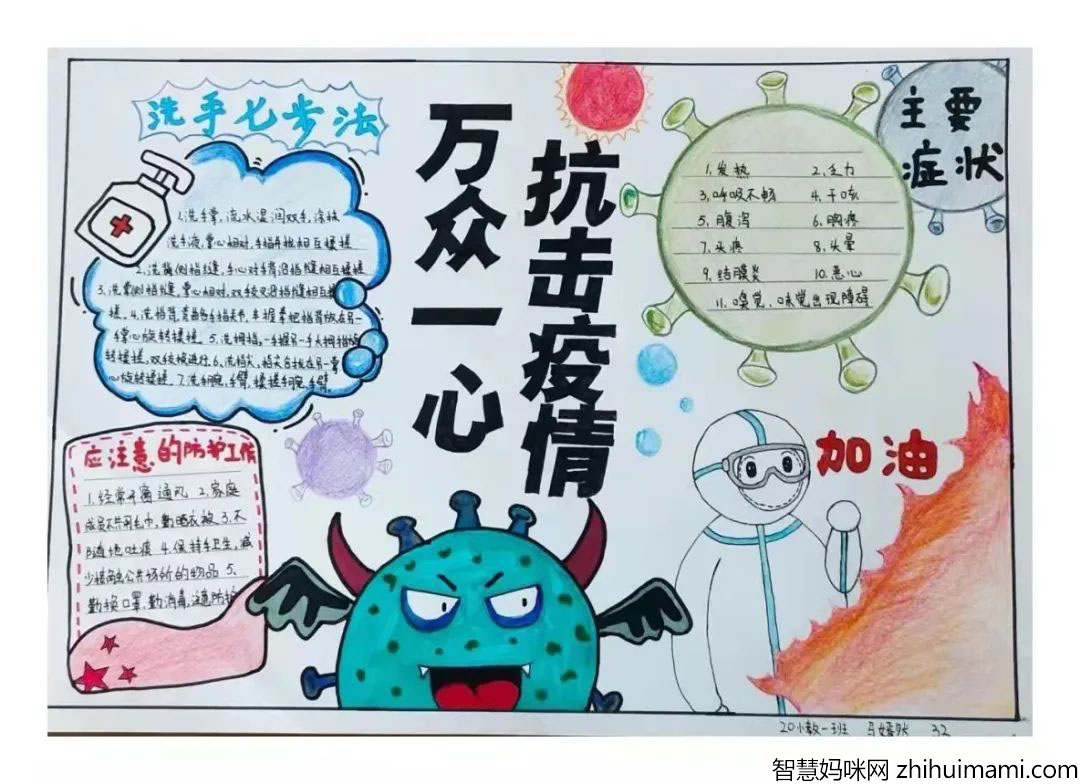 洗手七步法
1.洗手掌,流水湿润双手,涂抹
洗手液,掌心相对,手指并拢相互揉搓
2.洗背侧指缝,手心对手背沿指缝相互揉搓
3.洗掌侧指缝,掌心相对,双手交叉沿指缝相互揉
搓.4.洗指背,弯曲各手指关节,半握拳把指背放在另一
手掌心旋转揉搓.5.洗拇指,一手握另一手大拇指旋
转揉搓,双手交换进行.6.洗指尖,指尖合拢在另一掌
心旋转揉搓.7.洗手腕,手臂,揉搓手腕,手臂.
应注意的防护工作
1.经常开窗通风 2.家庭
成员不共用毛巾,勤晒衣被 3.不
随地吐痰 4.保持手卫生,减
少接触公共场所的物品 5.
勤换口罩,勤消毒,注意防护
万众一心
抗击疫情
主要
症状
1.发热 2.乏力
3.呼吸不畅 4.干咳
5.腹泻 6.胸疼
7.头疼 8.头晕
9.结膜炎 10.恶心
11.嗅觉、味觉出现障碍
加油
20小教一班 马 32
智慧妈咪网 zhihuimami.com